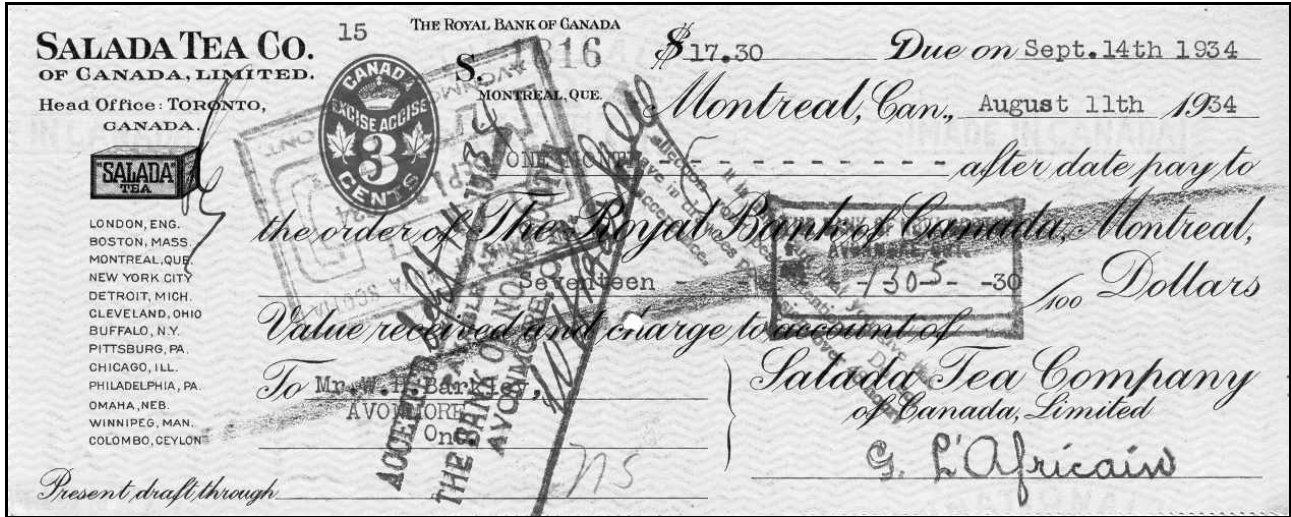 SALADA TEA CO.
OF CANADA, LIMITED.
Head Office: TORONTO,
CANADA.
"SALADA"
TEA
LONDON, ENG.
BOSTON, MASS.
MONTREAL, QUE.
NEW YORK CITY
DETROIT, MICH.
CLEVELAND, OHIO
BUFFALO, N.Y.
PITTSBURG, PA.
CHICAGO, ILL.
PHILADELPHIA, PA.
OMAHA, NEB.
WINNIPEG, MAN.
COLOMBO, CEYLON
15
THE ROYAL BANK OF CANADA
S. 1816
MONTREAL, QUE.
CANADA
EXCISE ACCISE
3
CENTS
$17.30 Due on Sept.14th 1934
Montreal, Can., August 11th 1934
ONE MONTH - - - - - - - - - - after date pay to
the order of The Royal Bank of Canada, Montreal,
Seventeen - - - - - - -30/100 Dollars
Value received and charge to account of
To Mr. W. H. Barkley,
AVONMORE
Ont.
Salada Tea Company
of Canada, Limited
G. L'Africain
Present draft through
ACCEPTED
PAYABLE AT
THE BANK OF NOVA SCOTIA
AVONMORE, ONT.
1305
NS
MADE IN CANADA